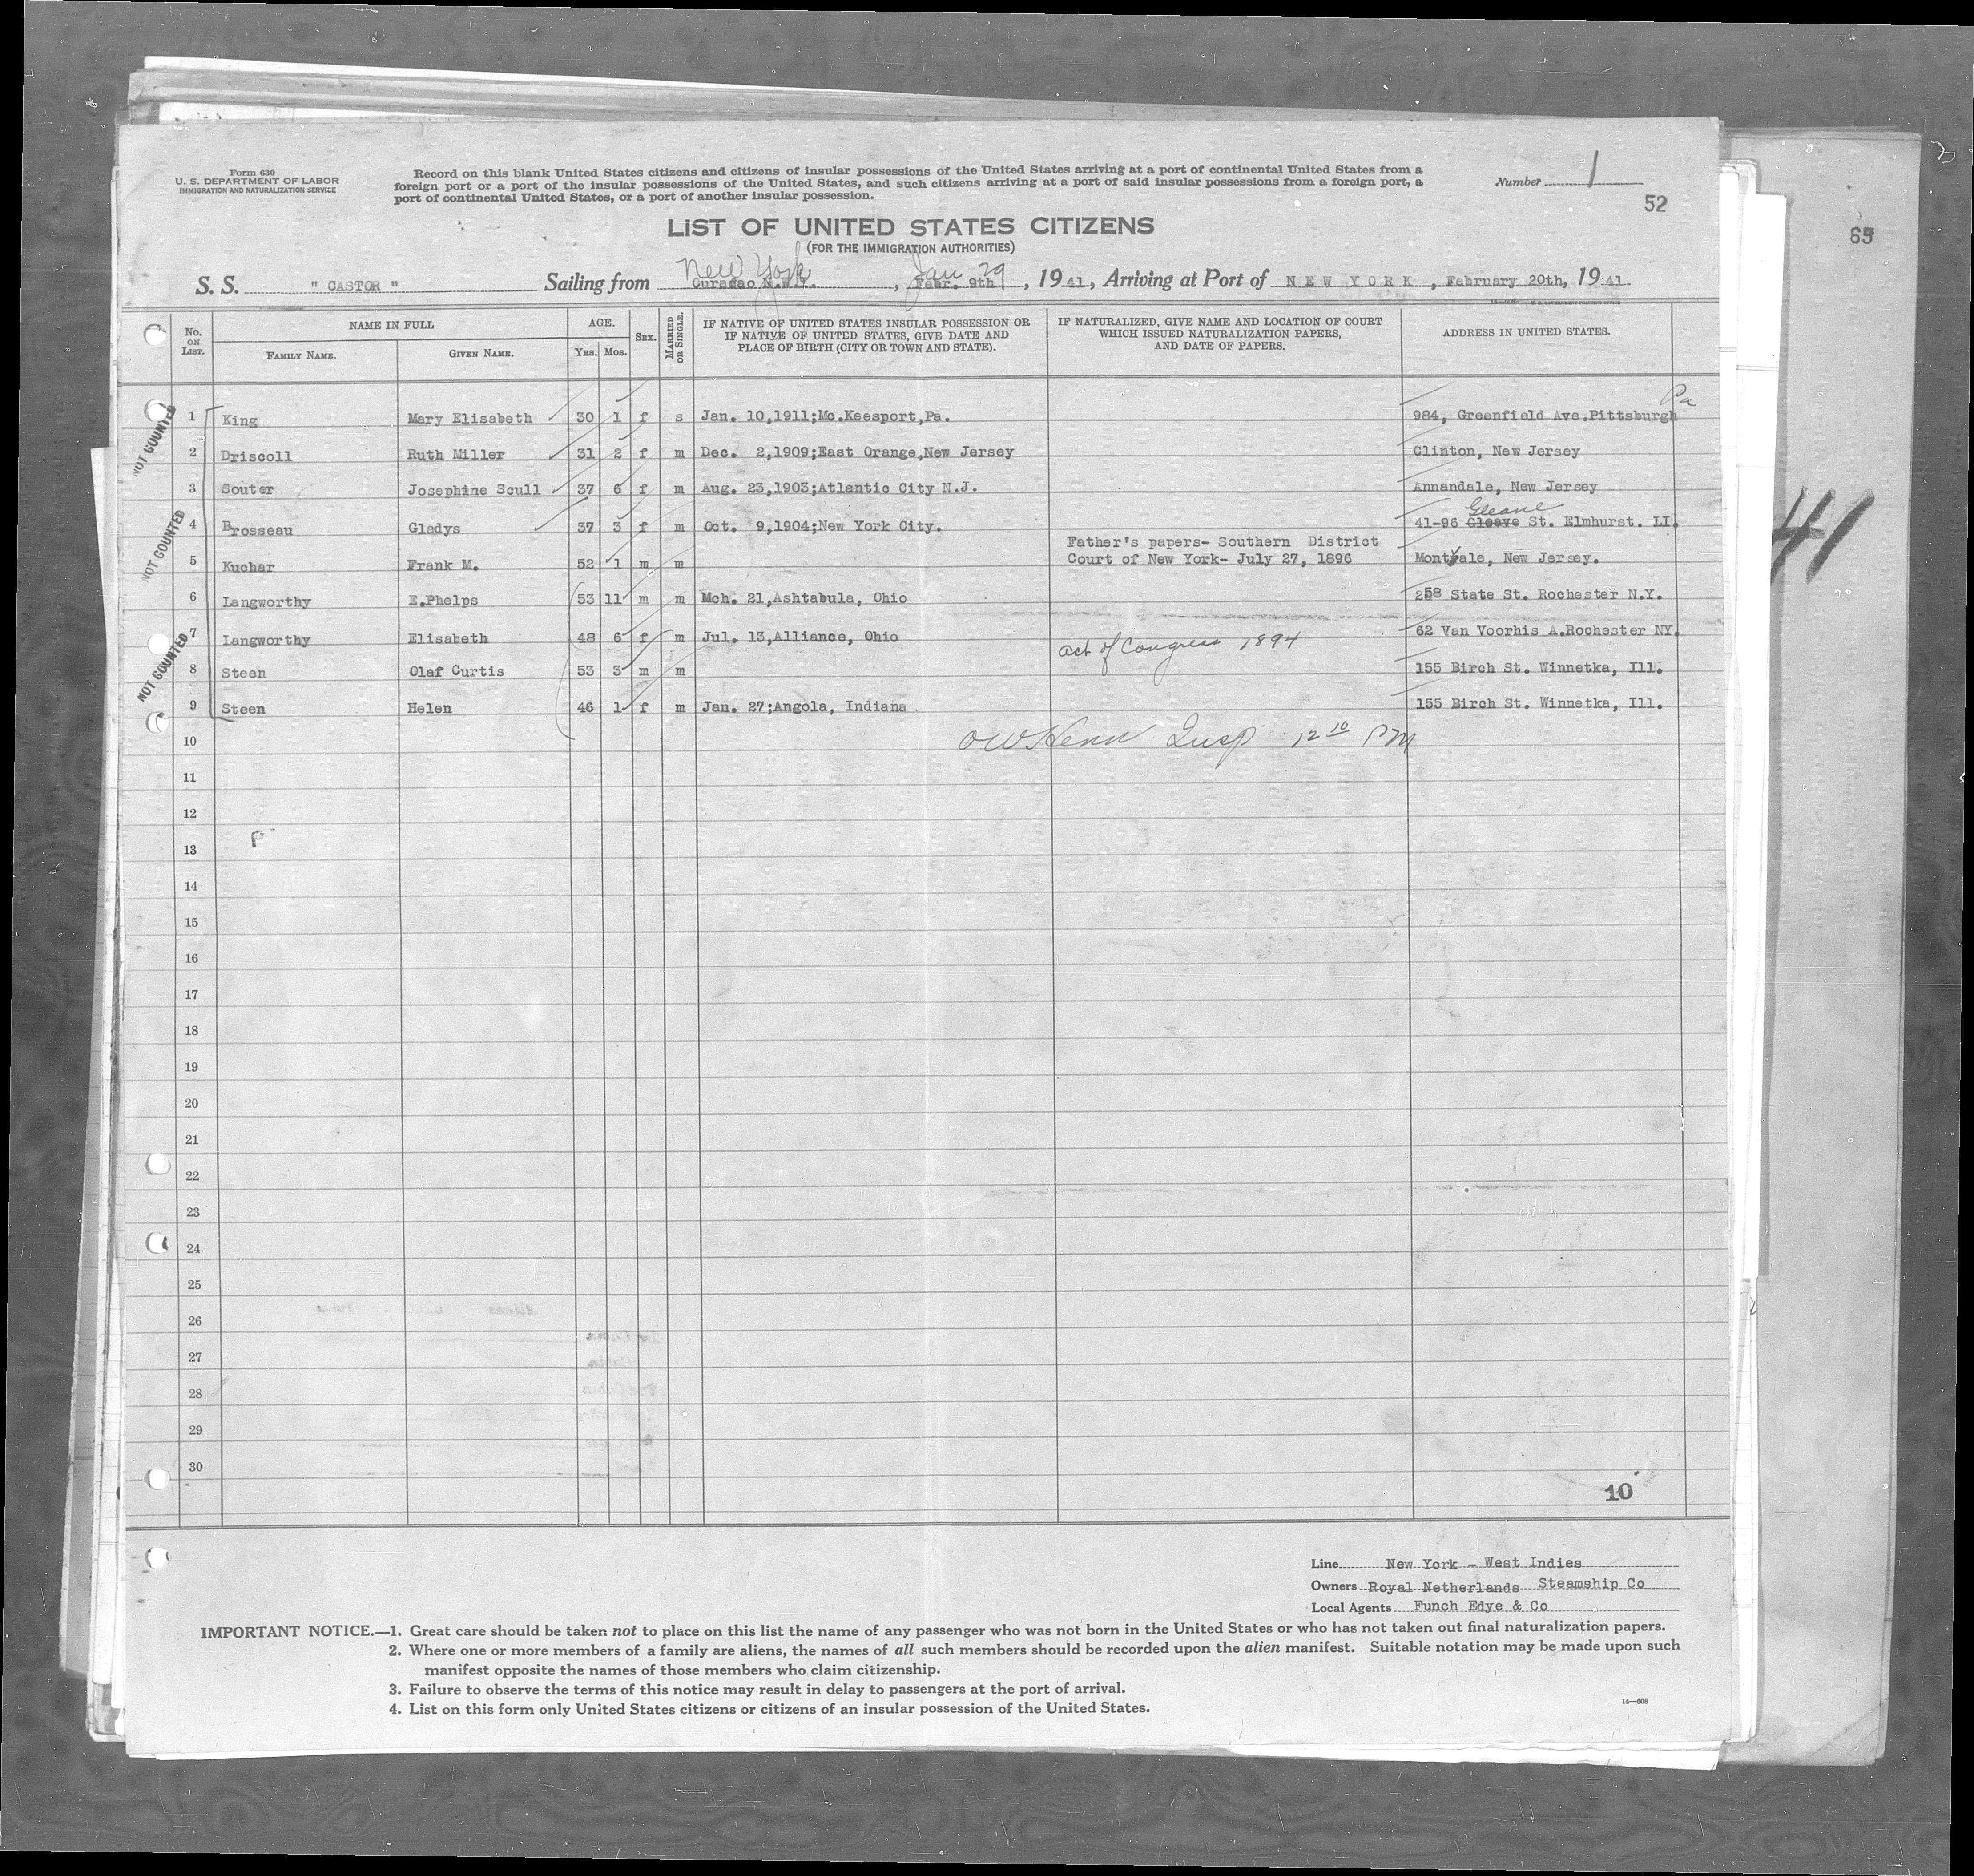 Form 630
U. S. DEPARTMENT OF LABOR
IMMIGRATION AND NATURALIZATION SERVICE
Record on this blank United States citizens and citizens of insular possessions of the United States arriving at a port of continental United States from a
foreign port or a port of the insular possessions of the United States, and such citizens arriving at a port of said insular possessions from a foreign port, a
port of continental United States, or a port of another insular possession.
Number 1
52
65
LIST OF UNITED STATES CITIZENS
(FOR THE IMMIGRATION AUTHORITIES)
New York Jan 29
S. S. " CASTOR " Sailing from Curacao N.W.I. , Febr. 9th , 19 41, Arriving at Port of NEW YORK , February 20th, 19 41.
No. ON LIST. NAME IN FULL FAMILY NAME. GIVEN NAME. AGE. YRS. MOS. SEX. MARRIED OR SINGLE. IF NATIVE OF UNITED STATES INSULAR POSSESSION OR IF NATIVE OF UNITED STATES, GIVE DATE AND PLACE OF BIRTH (CITY OR TOWN AND STATE). IF NATURALIZED, GIVE NAME AND LOCATION OF COURT WHICH ISSUED NATURALIZATION PAPERS, AND DATE OF PAPERS. ADDRESS IN UNITED STATES.
NOT COUNTED
1 King Mary Elisabeth 30 1 f s Jan. 10,1911;Mc.Keesport,Pa. 984, Greenfield Ave.Pittsburgh Pa
2 Driscoll Ruth Miller 31 2 f m Dec. 2,1909;East Orange,New Jersey Clinton, New Jersey
3 Souter Josephine Scull 37 6 f m Aug. 23,1903;Atlantic City N.J. Annandale, New Jersey
NOT COUNTED
4 Brosseau Gladys 37 3 f m Oct. 9,1904;New York City. 41-96 Gleave Gleane St. Elmhurst. LI.
Father's papers- Southern District
5 Kuchar Frank M. 52 1 m m Court of New York- July 27, 1896 Montvale, New Jersey.
6 Langworthy E.Phelps 53 11 m m Mch. 21,Ashtabula, Ohio 258 State St. Rochester N.Y.
NOT COUNTED
7 Langworthy Elisabeth 48 6 f m Jul. 13,Alliance, Ohio 62 Van Voorhis A.Rochester NY.
8 Steen Olaf Curtis 53 3 m m act of Congress 1894 155 Birch St. Winnetka, Ill.
9 Steen Helen 46 1 f m Jan. 27;Angola, Indiana 155 Birch St. Winnetka, Ill.
10 Insp 12 10 PM
11
12
13
14
15
16
17
18
19
20
21
22
23
24
25
26
27
28
29
30
10
Line New York - West Indies
Owners Royal Netherlands Steamship Co
Local Agents Funch Edye & Co
IMPORTANT NOTICE.—1. Great care should be taken not to place on this list the name of any passenger who was not born in the United States or who has not taken out final naturalization papers.
2. Where one or more members of a family are aliens, the names of all such members should be recorded upon the alien manifest. Suitable notation may be made upon such
manifest opposite the names of those members who claim citizenship.
3. Failure to observe the terms of this notice may result in delay to passengers at the port of arrival.
4. List on this form only United States citizens or citizens of an insular possession of the United States.
14—608